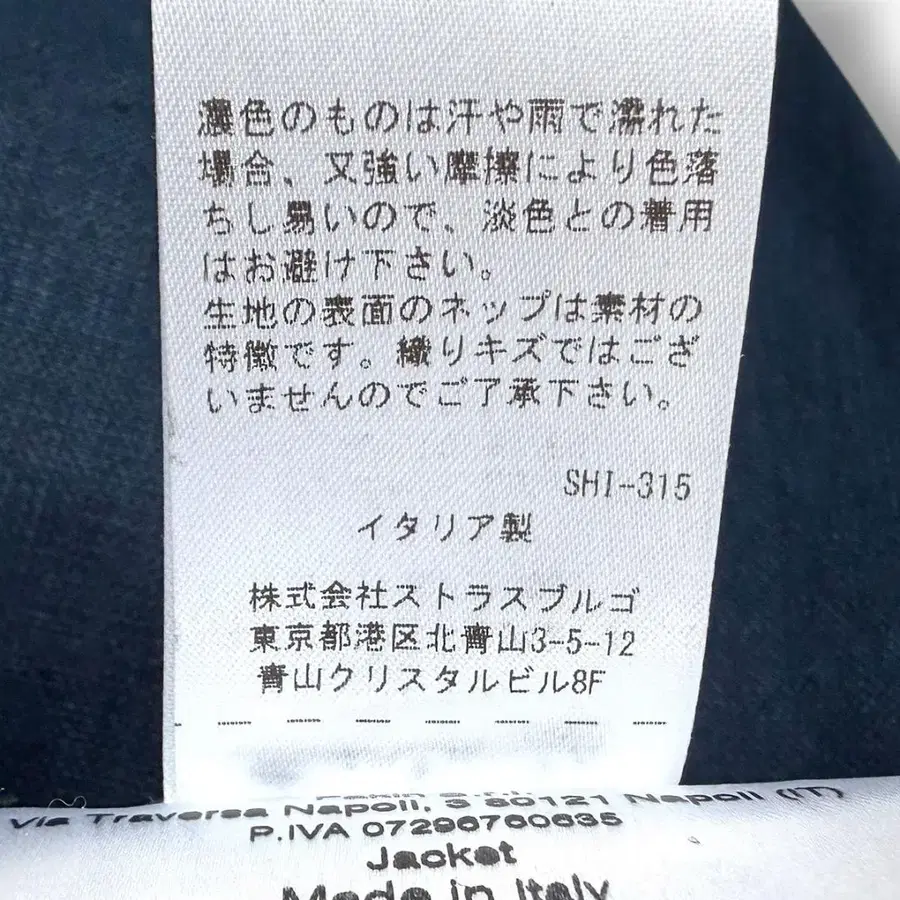 濃色のものは汗や雨で濡れた
場合、又強い摩擦により色落
ちし易いので、淡色との着用
はお避け下さい。
生地の表面のネップは素材の
特徴です。織りキズではござ
いませんのでご了承下さい。
SHI-315
イタリア製
株式会社ストラスブルゴ
東京都港区北青山3-5-12
青山クリスタルビル8F
Via Traversa Napoli, 3 80121 Napoli (IT)
P.IVA 07296760635
Jacket
Made in Italy